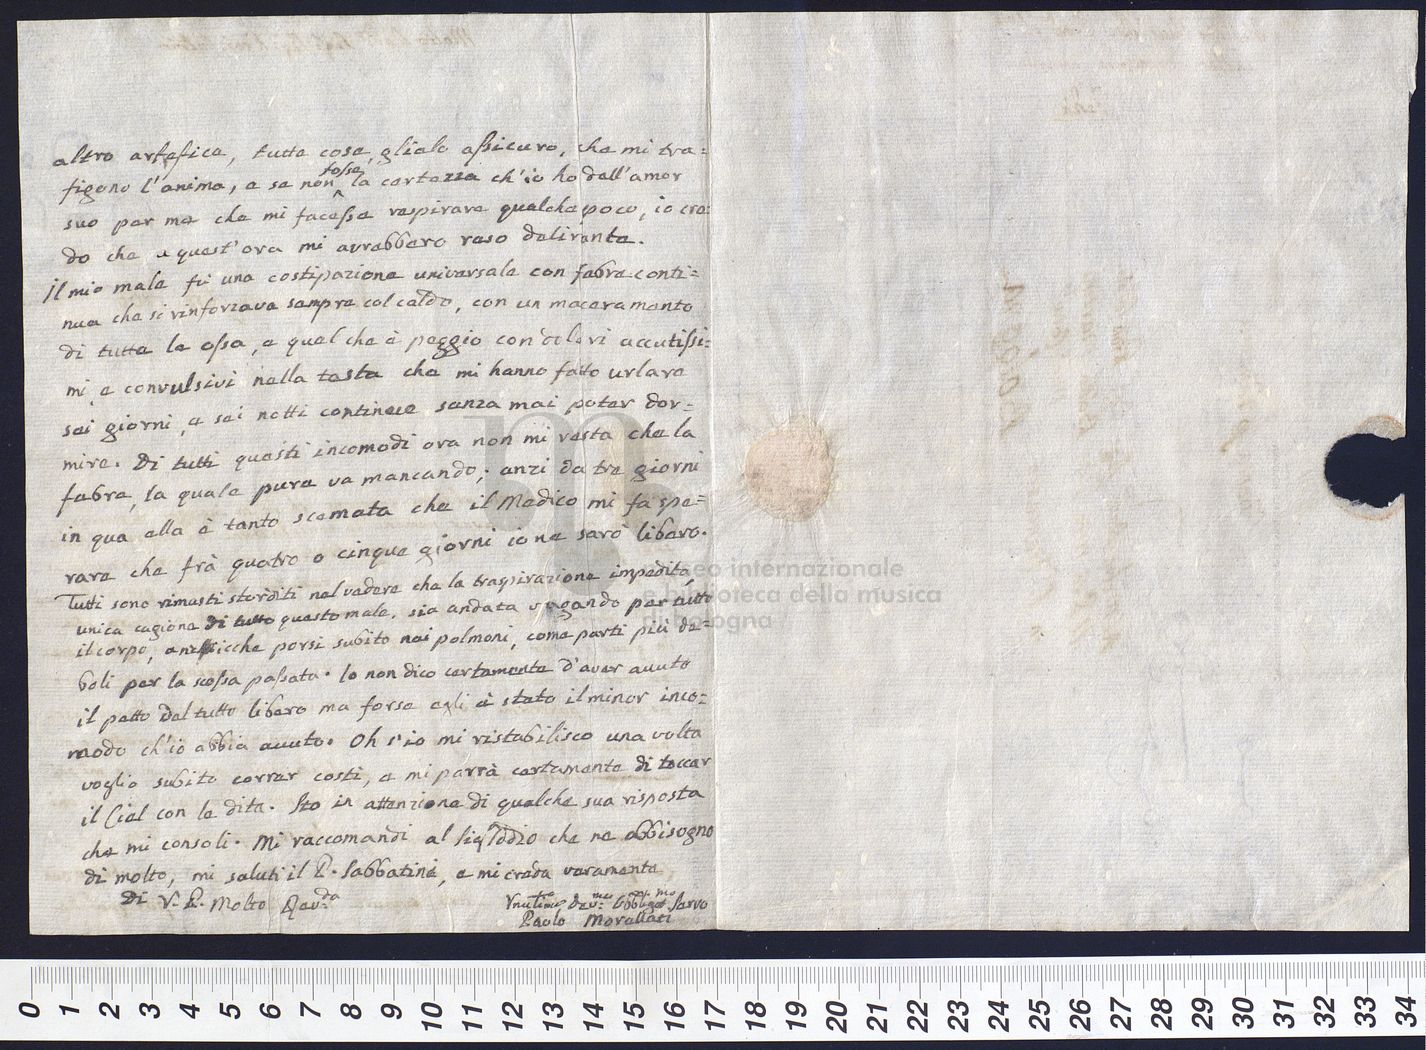 altro artefice, tutte cose, glielo assicuro, che mi tra=
figono l'anima, e se non fosse la certezza ch'io ho dell'amor
suo per me che mi facesse respirare qualche poco, io cre=
do che a quest'ora mi avrebbero reso delirante.
Il mio male fù una costipazione universale con febre conti=
nua che si rinforzava sempre col caldo, con un maceramento
di tutte le ossa, e quel che è peggio con dolori accutissi=
mi, e convulsivi nella testa che mi hanno fatto urlare
sei giorni, e sei notti continue senza mai poter dor=
mire. Di tutti questi incomodi ora non mi resta che la
febre, la quale pure va mancando; anzi da tre giorni
in qua ella è tanto scemata che il Medico mi fa spe=
rare che frà quatro o cinque giorni io ne sarò libero.
Tutti sono rimasti storditi nel vedere che la traspirazione impedita,
unica cagione di tutto questo male, sia andata vagando per tutto
il corpo, anzicche porsi subito nei polmoni, come parti più de=
boli per la scossa passata. Io non dico certamente d'aver avuto
il petto del tutto libero ma forse egli è stato il minor inco=
modo ch'io abbia avuto. Oh s'io mi ristabilisco una volta
voglio subito correr costì, e mi parrà certamente di toccar
il Ciel con le dita. Sto in attenzione di qualche sua risposta
che mi consoli. Mi raccomandi al Sig.r Iddio che ne abbisogno
di molto, mi saluti il P. Sabbatini, e mi creda veramente
Di V. P. Molto Rev.da
Umilmo Devmo Obbligmo Servo
Paolo Morellati
museo internazionale
e biblioteca della musica
di bologna
0 1 2 3 4 5 6 7 8 9 10 11 12 13 14 15 16 17 18 19 20 21 22 23 24 25 26 27 28 29 30 31 32 33 34